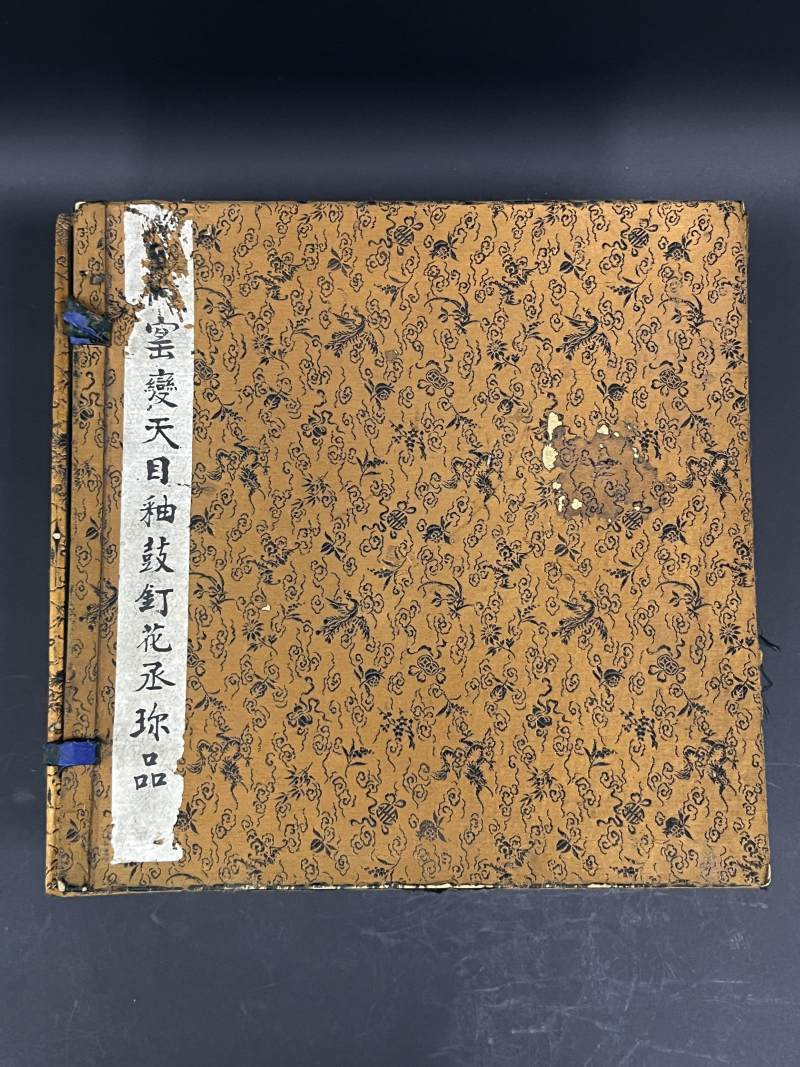 窑變天目釉鼓釘花丞珎品